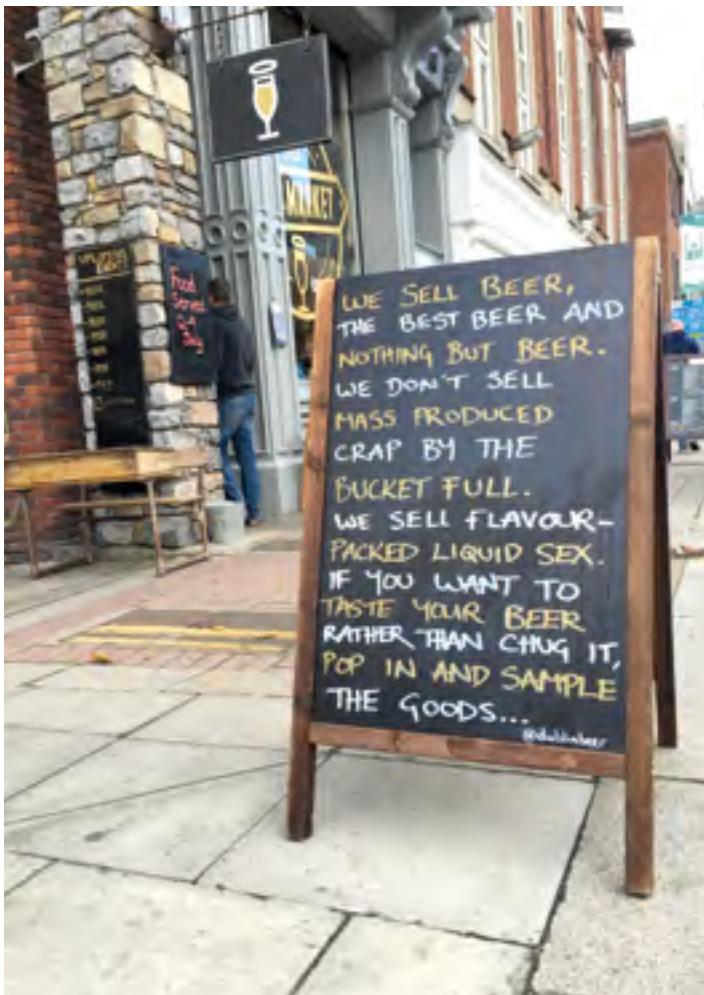 MARKET
Food
Served
Day
WE SELL BEER,
THE BEST BEER AND
NOTHING BUT BEER.
WE DON'T SELL
MASS PRODUCED
CRAP BY THE
BUCKET FULL.
WE SELL FLAVOUR-
PACKED LIQUID SEX.
IF YOU WANT TO
TASTE YOUR BEER
RATHER THAN CHUG IT,
POP IN AND SAMPLE
THE GOODS...
@dublinbeer